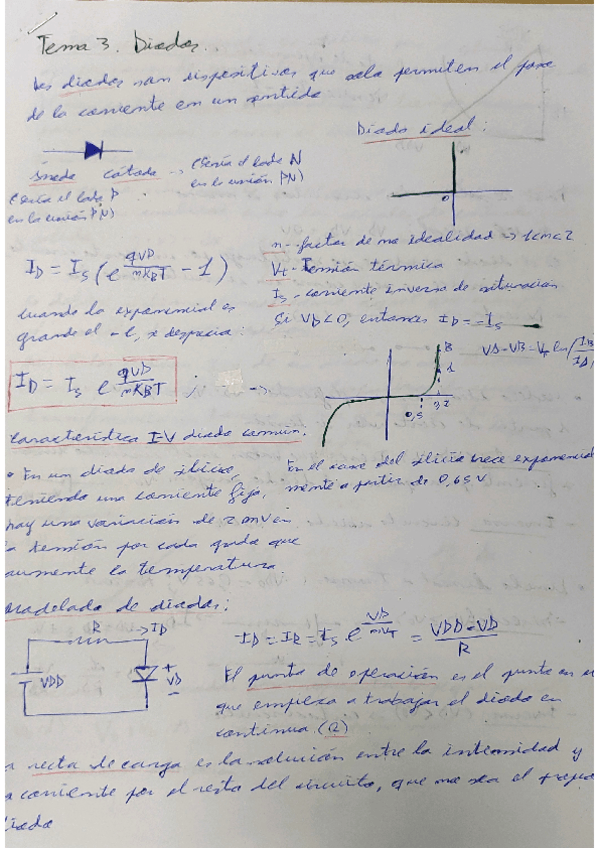 Tema 3. Diodos.
Los diodos son dispositivos que solo permiten el paso
de la corriente en un sentido
Diodo ideal:
Ánodo cátodo -> (Sería el lado N
en la unión PN)
(Sería el lado P
en la unión PN)
0
n- factor de no idealidad -> 1<n<2
V_T - Tensión térmica
I_S - corriente inversa de saturación
Si V_D<0, entonces I_D = -I_S
I_D = I_S (e^{qVD/nK_BT} - 1)
Cuando la exponencial es
grande el -1, se desprecia:
I_D = I_S e^{qVD/nK_BT} ;
B
A
0,5
VA-VB = V_T ln(
Característica I-V diodo común.
• En un diodo de silicio,
teniendo una corriente fija,
hay una variación de 2 mV en
la tensión por cada grado que
aumente la temperatura.
En el caso del silicio crece exponencial
mente a partir de 0,65 V
Modelado de diodos:
R -> ID
VDD
+
VD
-
ID = IR = I_S e^{VD/nV_T} = VDD-VD/R
El punto de operación es el punto en
que empieza a trabajar el diodo en
continua (Q)
recta de carga es la solución entre la intensidad y
corriente por el resto del circuito, que no sea el propio
diodo